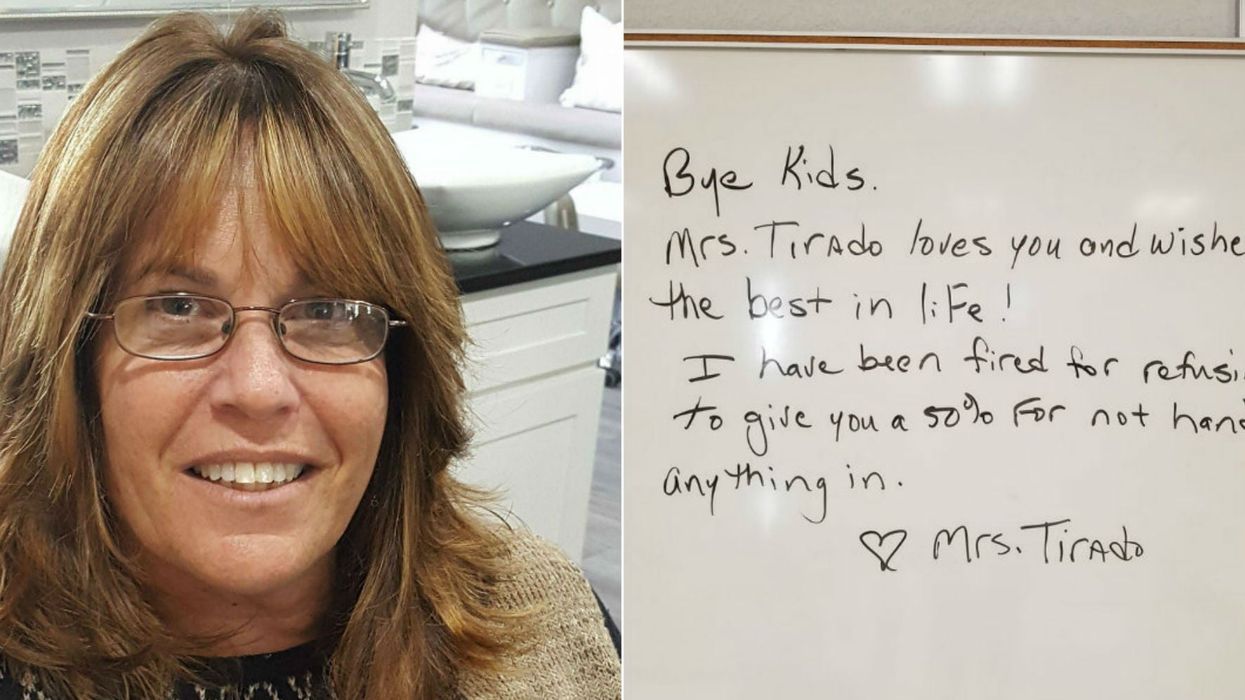 Bye Kids.
Mrs. Tirado loves you and wishe
the best in life!
I have been fired for refusi
to give you a 50% for not hand
anything in.
♡ Mrs. Tirado